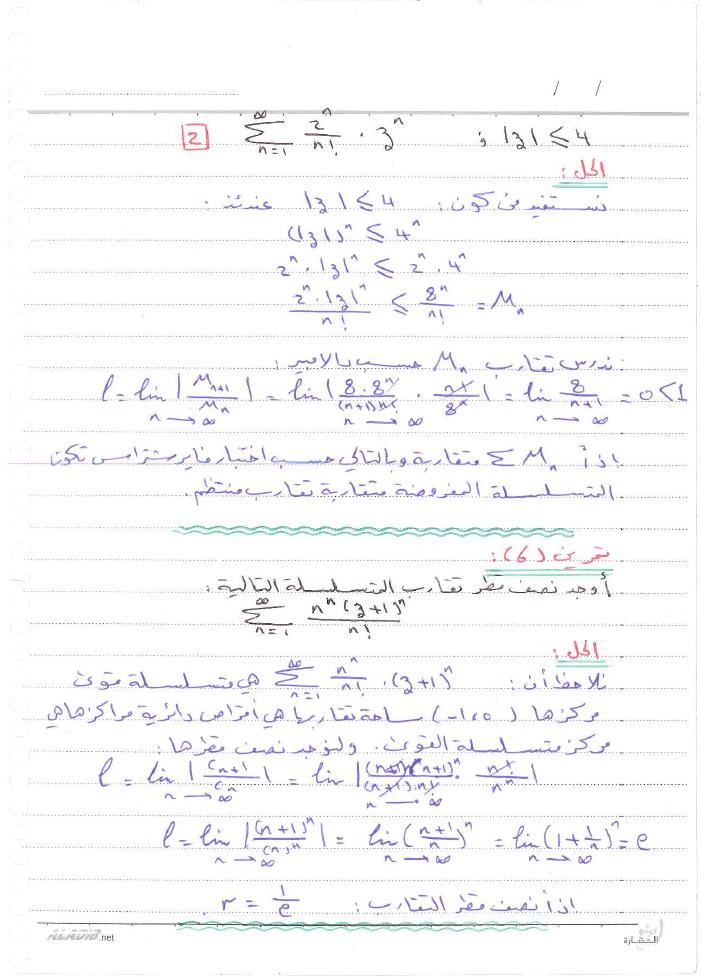 / /
[2] ∑_{n=1}^{∞} 2^n/n! · z^n ; |z| ≤ 4
الحل:
نستفيد من كون: |z| ≤ 4 عندئذ.
(|z|)^n ≤ 4^n
2^n · |z|^n ≤ 2^n · 4^n
2^n · |z|^n / n! ≤ 8^n/n! = M_n
ندرس تقارب M_n حسب دالامبير:
l = lim_{n→∞} |M_{n+1}/M_n| = lim_{n→∞} |8·8^n/(n+1)n! · n!/8^n| = lim_{n→∞} 8/(n+1) = 0 < 1
اذاً ∑ M_n متقاربة وبالتالي حسب اختبار فايرشتراس تكون
المتسلسلة المفروضة متقاربة تقارب منتظم.
تمرين (6):
أوجد نصف قطر تقارب المتسلسلة التالية:
∑_{n=1}^{∞} n^n (z+1)^n / n!
الحل:
نلاحظ أن: ∑_{n=1}^{∞} n^n/n! · (z+1)^n هي متسلسلة قوى
مركزها (-1,0) ساحة تقاربها هي أقراص دائرية مراكزها هي
مركز متسلسلة القوى. ولنوجد نصف قطرها:
l = lim_{n→∞} |C_{n+1}/C_n| = lim_{n→∞} |(n+1)(n+1)^n/(n+1)·n! · n!/n^n|
l = lim_{n→∞} |(n+1)^n/(n)^n| = lim_{n→∞} ((n+1)/n)^n = lim_{n→∞} (1+1/n)^n = e
اذاً نصف قطر التقارب: r = 1/e
ALADIB.net الحضارة